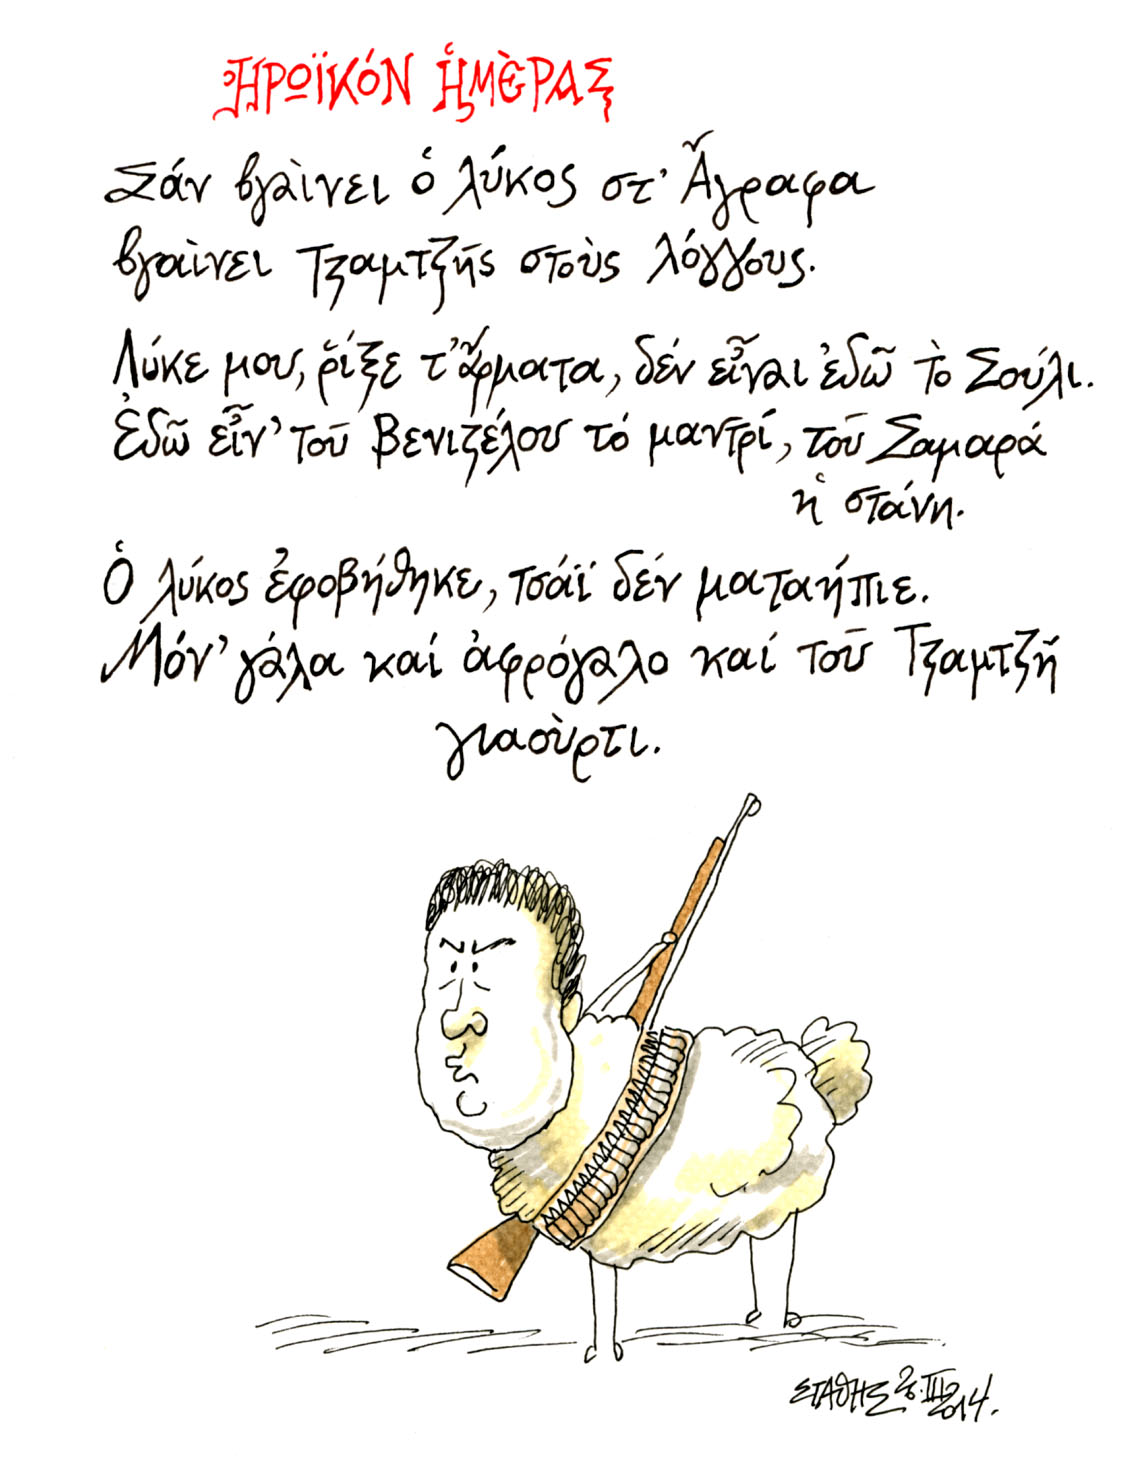 ἩΡΩΪΚΌΝ ἩΜῈΡΑΣ
Σάν βγαὶνει ὁ λύκος στ' Ἄγραφα
βγαὶνει Τζαμτζῆς στοὺς λόγγους.
Λύκε μου, ῥίξε τ' ἄρματα, δέν εἶναι ἐδῶ τὸ Σούλι.
Ἐδῶ εἶν' τοῦ Βενιζέλου τό μαντρί, τοῦ Σαμαρά
ἡ στάνη.
Ὁ λύκος ἐφοβήθηκε, τσάϊ δέν ματαήπιε.
Μόν' γάλα καί ἀφρόγαλο καί τοῦ Τζαμτζῆ
γιαοὺρτι.
ΣΤΑΘΗΣ 26.III.2014.